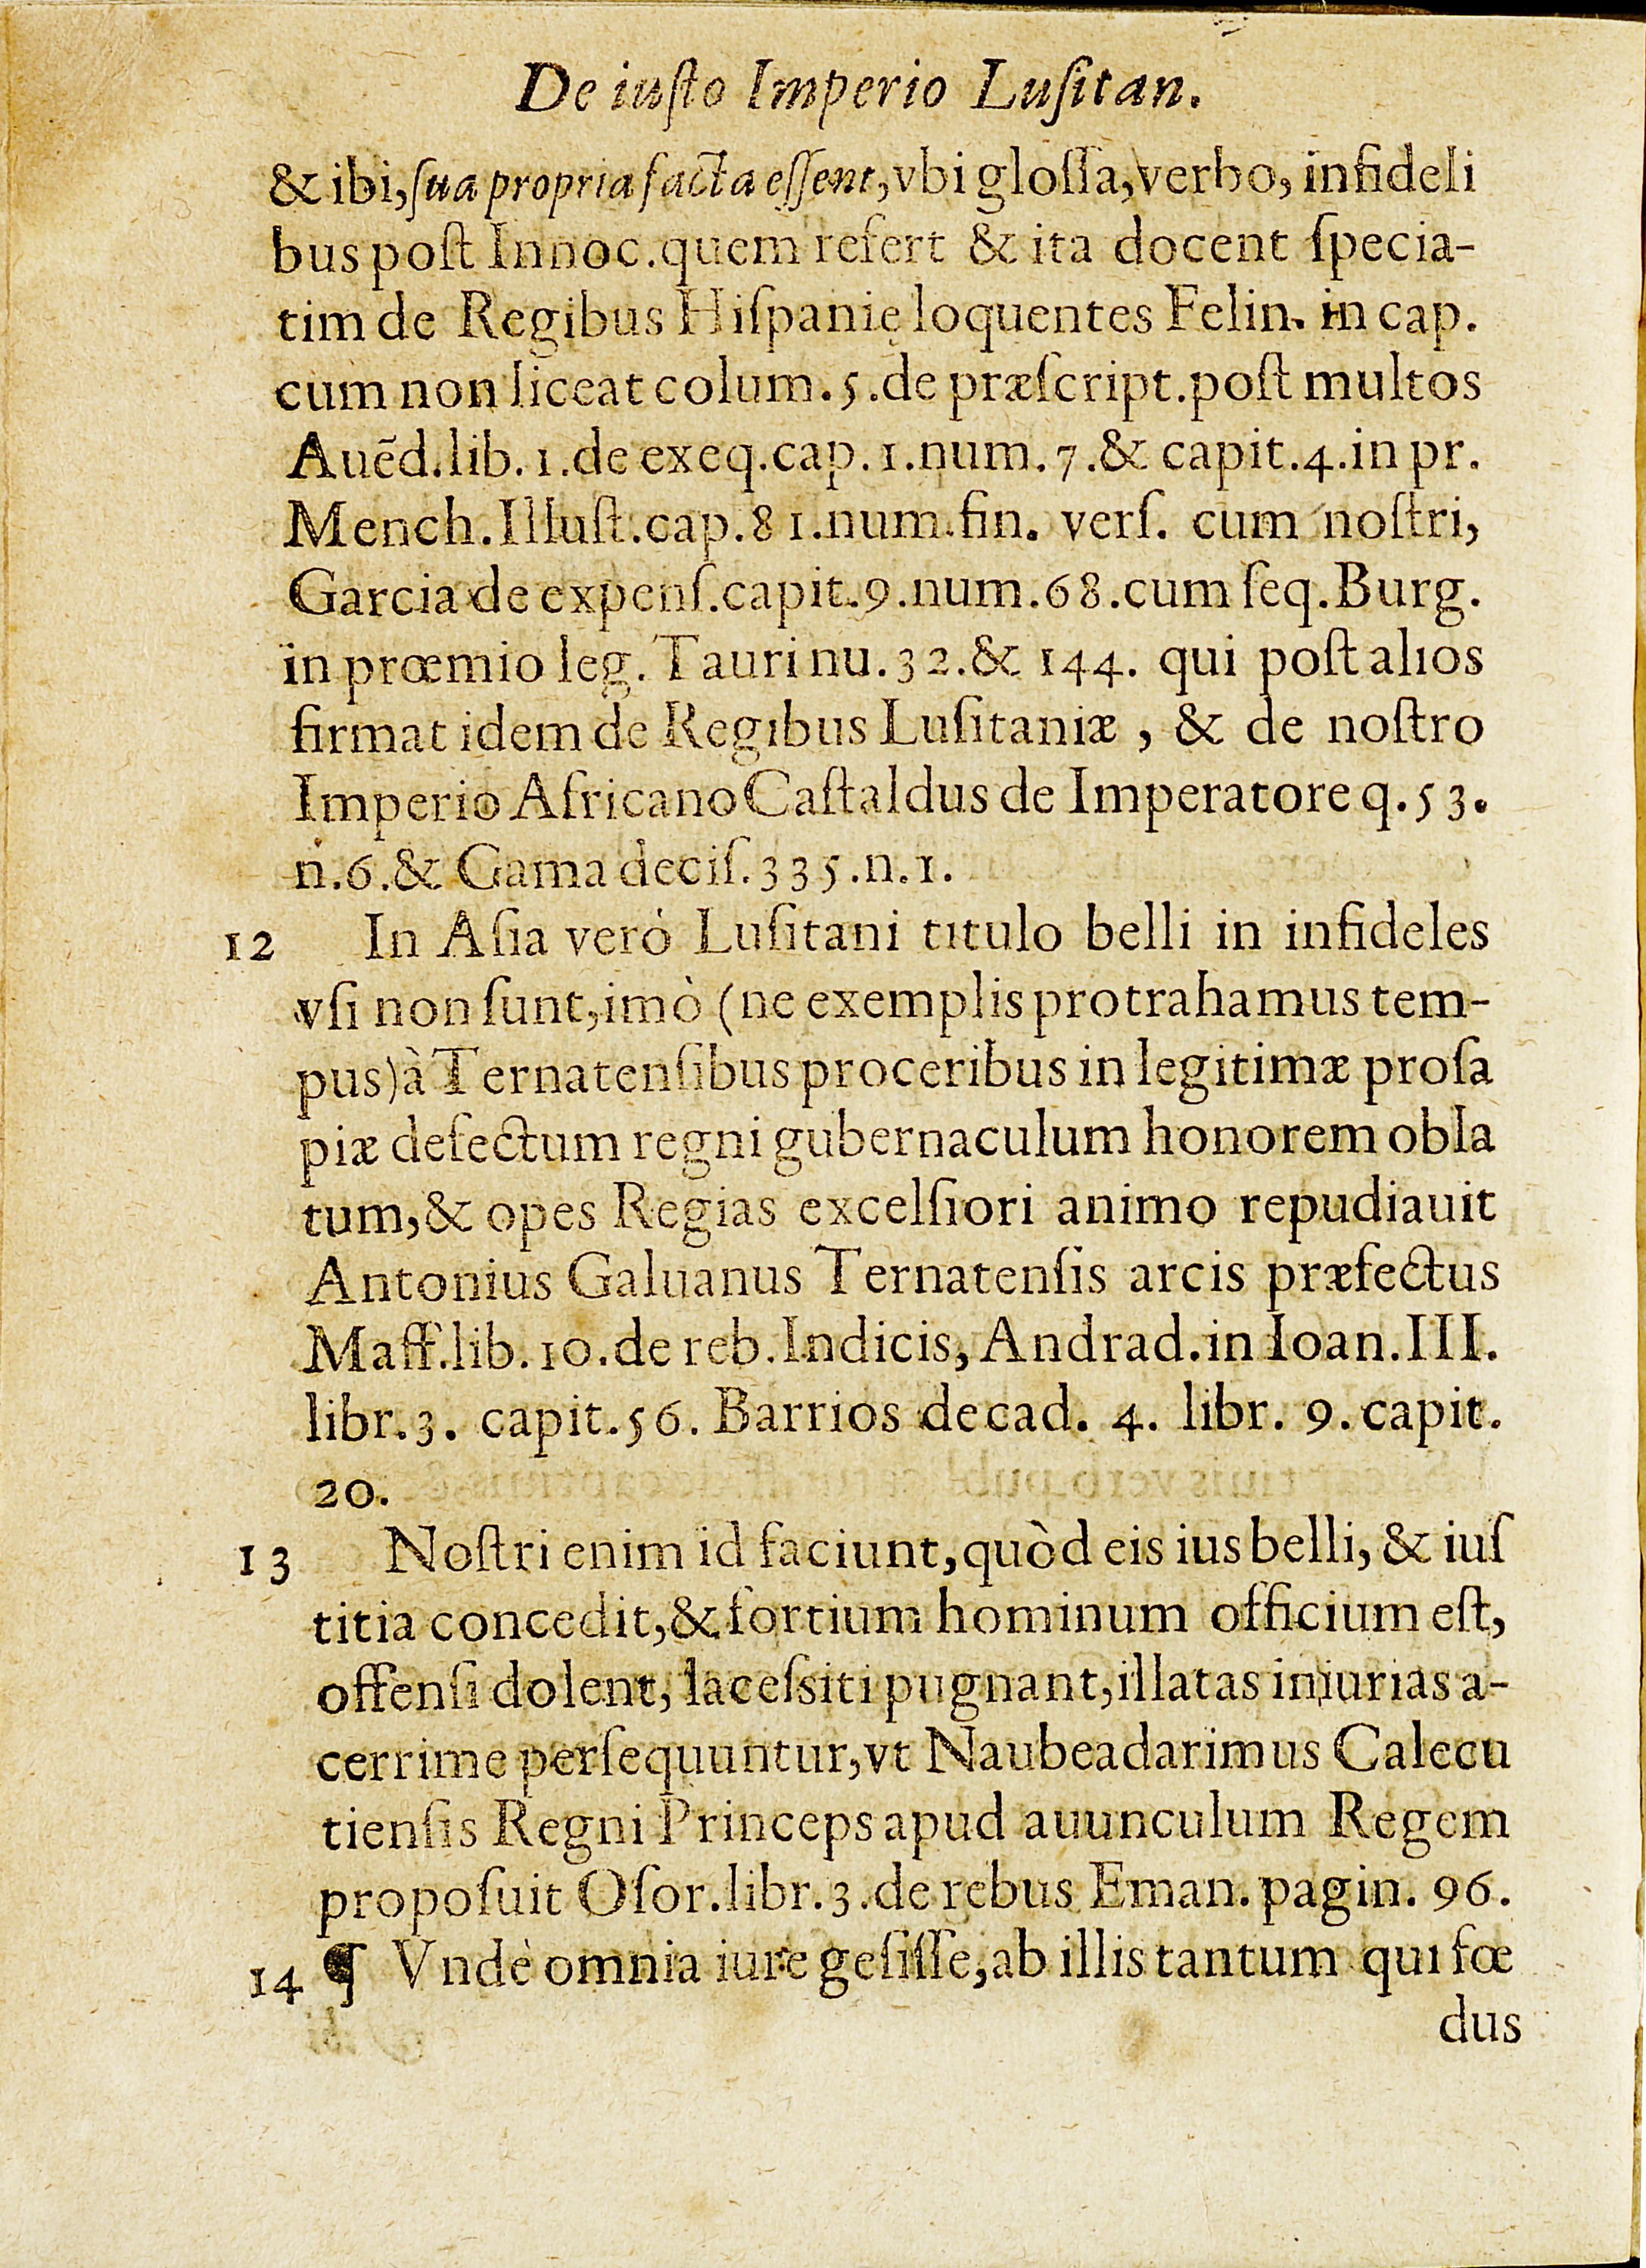 De iuſto Imperio Luſitan.
& ibi, ſua propria facta eſſent, vbi gloſſa, verbo, infideli
bus poſt Innoc. quem refert & ita docent ſpecia-
tim de Regibus Hiſpanię loquentes Felin. in cap.
cum non liceat colum. 5. de præſcript. poſt multos
Auēd. lib. 1. de exeq. cap. 1. num. 7. & capit. 4. in pr.
Mench. Illuſt. cap. 81. num. fin. verſ. cum noſtri,
Garcia de expenſ. capit. 9. num. 68. cum ſeq. Burg.
in prœmio leg. Tauri nu. 32. & 144. qui poſt alios
firmat idem de Regibus Luſitaniæ , & de noſtro
Imperio Africano Caſtaldus de Imperatore q. 53.
n. 6. & Gama deciſ. 335. n. 1.
12 In Aſia verò Luſitani titulo belli in infideles
vſi non ſunt, imò (ne exemplis protrahamus tem-
pus) à Ternatenſibus proceribus in legitimæ proſa
piæ defectum regni gubernaculum honorem obla
tum, & opes Regias excelſiori animo repudiauit
Antonius Galuanus Ternatenſis arcis præfectus
Maff. lib. 10. de reb. Indicis, Andrad. in Ioan. III.
libr. 3. capit. 56. Barrios decad. 4. libr. 9. capit.
20.
13 Noſtri enim id faciunt, quòd eis ius belli, & iuſ
titia concedit, & fortium hominum officium eſt,
offenſi dolent, laceſsiti pugnant, illatas iniurias a-
cerrime perſequuntur, vt Naubeadarimus Calecu
tienſis Regni Princeps apud auunculum Regem
propoſuit Oſor. libr. 3. de rebus Eman. pagin. 96.
14 ¶ Vndè omnia iure geſiſſe, ab illis tantum qui fœ
dus